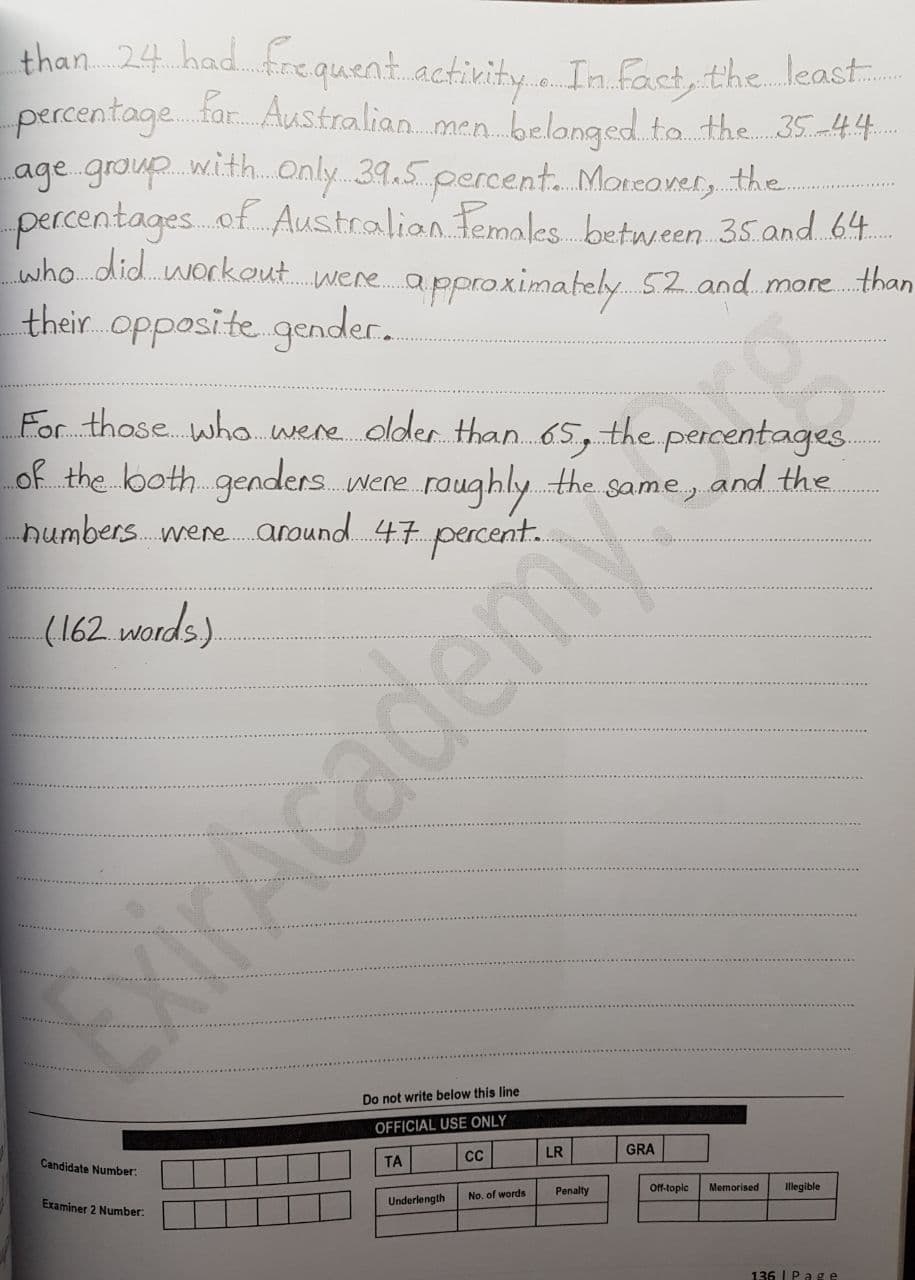 than 24 had frequent activity. In fact, the least
percentage for Australian men belonged to the 35-44
age group with only 39.5 percent. Moreover, the
percentages of Australian females between 35 and 64
who did workout were approximately 52 and more than
their opposite gender.
For those who were older than 65, the percentages
of the both genders were roughly the same, and the
numbers were around 47 percent.
(162 words)
ExirAcademy.Org
Do not write below this line
OFFICIAL USE ONLY
Candidate Number:
TA CC LR GRA
Examiner 2 Number:
Underlength No. of words Penalty Off-topic Memorised Illegible
136 | Page